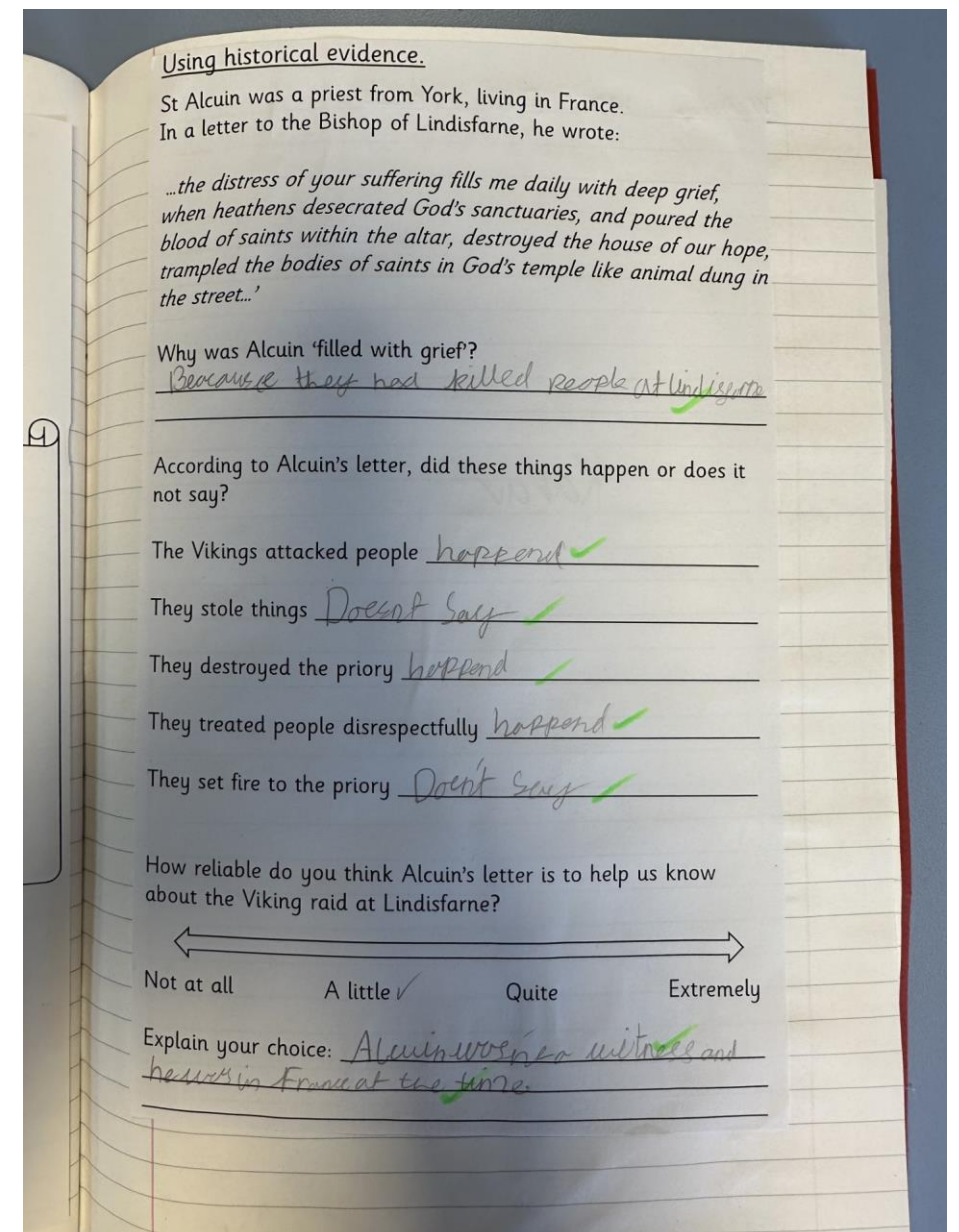 Using historical evidence.
St Alcuin was a priest from York, living in France.
In a letter to the Bishop of Lindisfarne, he wrote:
...the distress of your suffering fills me daily with deep grief,
when heathens desecrated God's sanctuaries, and poured the
blood of saints within the altar, destroyed the house of our hope,
trampled the bodies of saints in God's temple like animal dung in
the street...'
Why was Alcuin 'filled with grief'?
Beacause they had killed people at
According to Alcuin's letter, did these things happen or does it
not say?
The Vikings attacked people happend
They stole things Doesnt Say
They destroyed the priory happend
They treated people disrespectfully happend
They set fire to the priory Doent Say
How reliable do you think Alcuin's letter is to help us know
about the Viking raid at Lindisfarne?
Not at all A little Quite Extremely
Explain your choice: Alcuin a witness and
he was in France at the time.